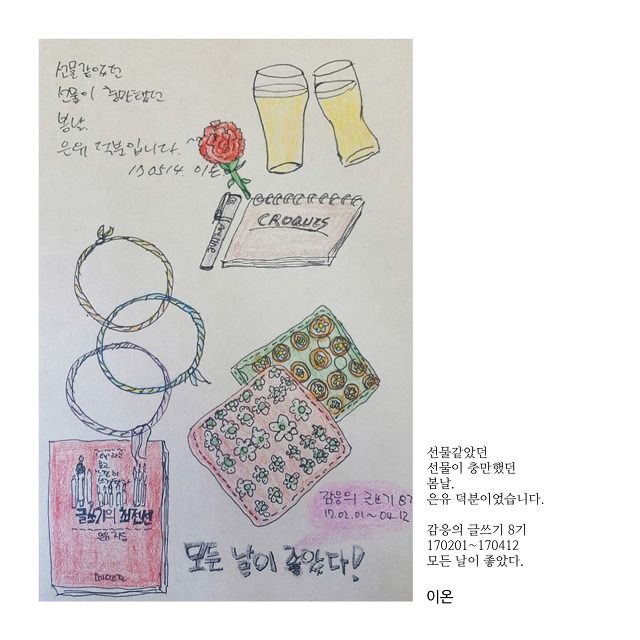 선물같았던
선물이 충만했던
봄날.
은유 덕분입니다.^^
170514. 이온
CROQUIS
글쓰기의 최전선
은유 지음
감응의 글쓰기 8기
17.02.01~04.12
모든 날이 좋았다!
선물같았던
선물이 충만했던
봄날.
은유 덕분이었습니다.
감응의 글쓰기 8기
170201~170412
모든 날이 좋았다.
이온